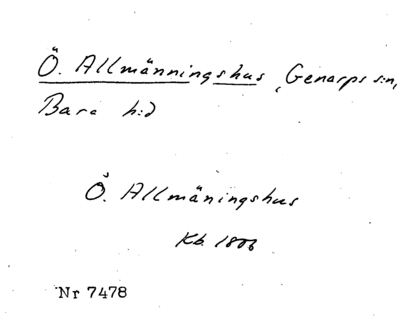 Ö. Allmänningshus, Genarps s:n,
Bara h:d
Ö. Allmäningshus
Kb. 1806
Nr 7478